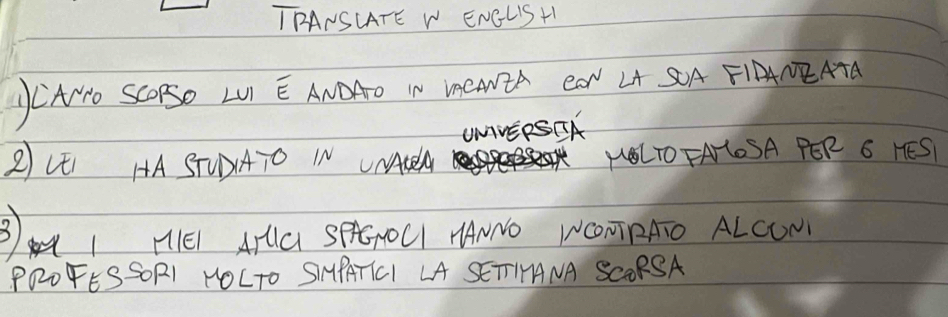 TRANSLATE IN ENGLISH
1) L'ANNO SCORSO LUI È ANDATO IN VACANZA CON LA SUA FIDANZATA
UNIVERSITÀ
2) LEI HA STUDIATO IN UNA MOLTO FAMOSA PER 6 MESI
3) I MIEI AMICI SPAGNOLI HANNO INCONTRATO ALCUNI
PROFESSORI MOLTO SIMPATICI LA SETTIMANA SCORSA